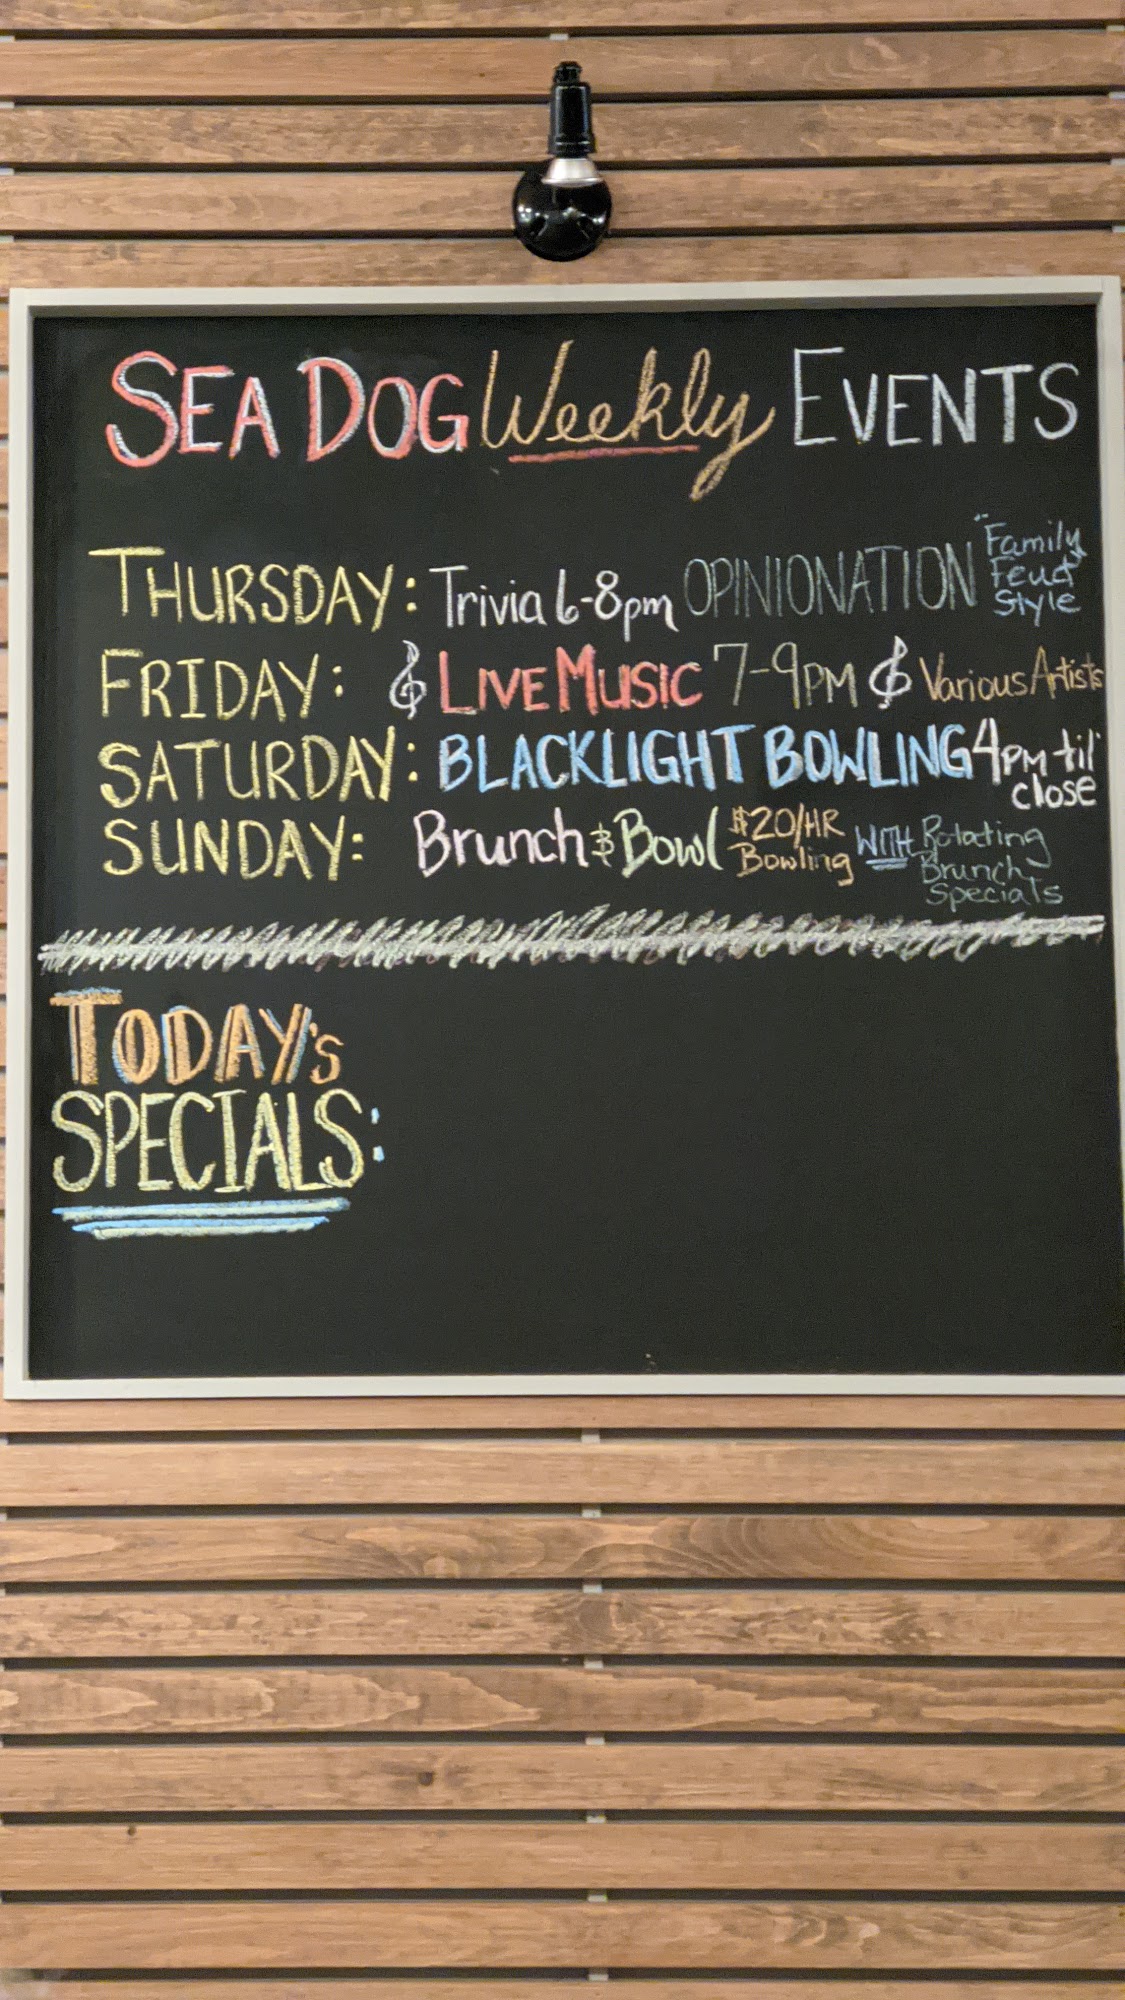 SEA DOG Weekly EVENTS
THURSDAY: Trivia 6-8pm OPINIONATION "Family Feud Style
FRIDAY: LIVE MUSIC 7-9PM Various Artists
SATURDAY: BLACKLIGHT BOWLING 4PM til' close
SUNDAY: Brunch & Bowl $20/HR Bowling WITH Rotating Brunch Specials
TODAY'S
SPECIALS: